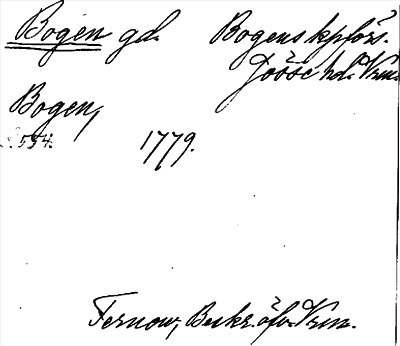 Bogen gd. Bogens kpförs.
Jösse hd. Vrm.
Bogen,
s. 554. 1779.
Fernow, Beskr. öfv. Vrm.